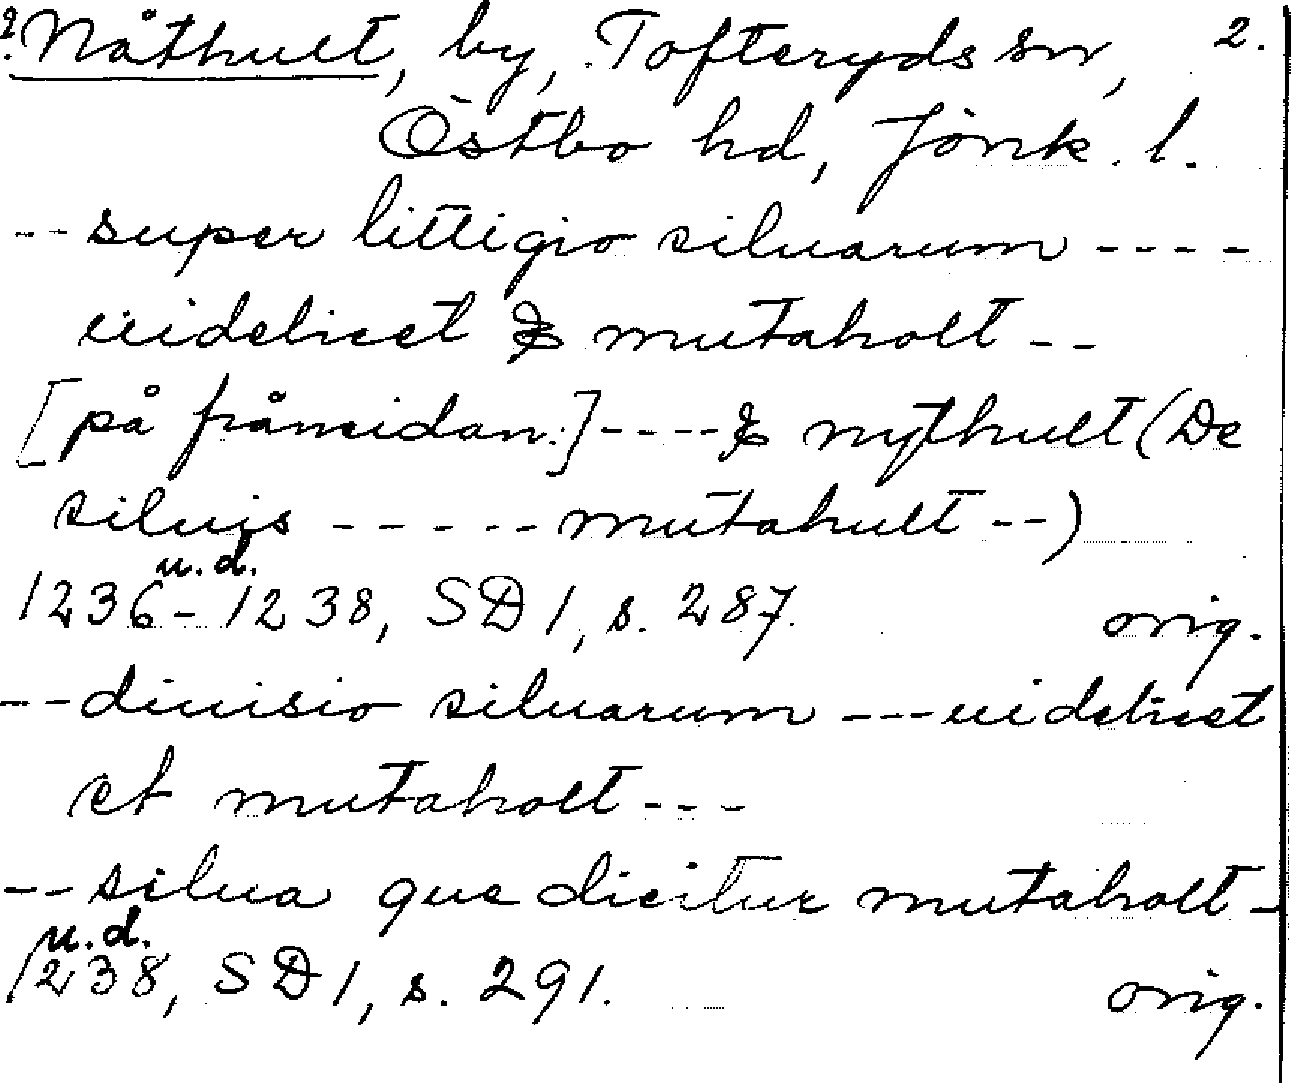 ?Nåthult, by, Tofteryds sn, 2.
Östbo hd, Jönk. l.
--super littigio siluarum ----
uidelicet & mutaholt --
[på frånsidan:]----& nythult (De
siluis ----- mutahult --)
u.d.
1236-1238, SD 1, s. 287. orig.
--diuisio siluarum ---uidelicet
et mutaholt ---
--silua que dicitur mutaholt -
u.d.
1238, SD 1, s. 291. orig.